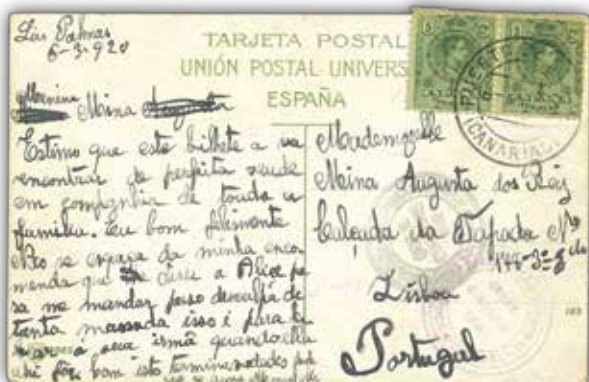 Las Palmas
6-3-920
TARJETA POSTAL
UNIÓN POSTAL UNIVERS
ESPAÑA
Menina Mina Augusta
Estimo que este bilhete a va
encontrar de perfeita saude
em companhia de touda a
familia. Eu bom felismente
Não se esqueça da minha enco
menda que disse a Alice pa
ra me mandar peso desculpa de
tanta massada isso é para
a sua irmã quando ella
bom isto termina
Mademoyelle
Mina Augusta dos Reiz
Calçada da Tapada Nº
Lisboa
Portugal
PUERTO
(CANARIAS)